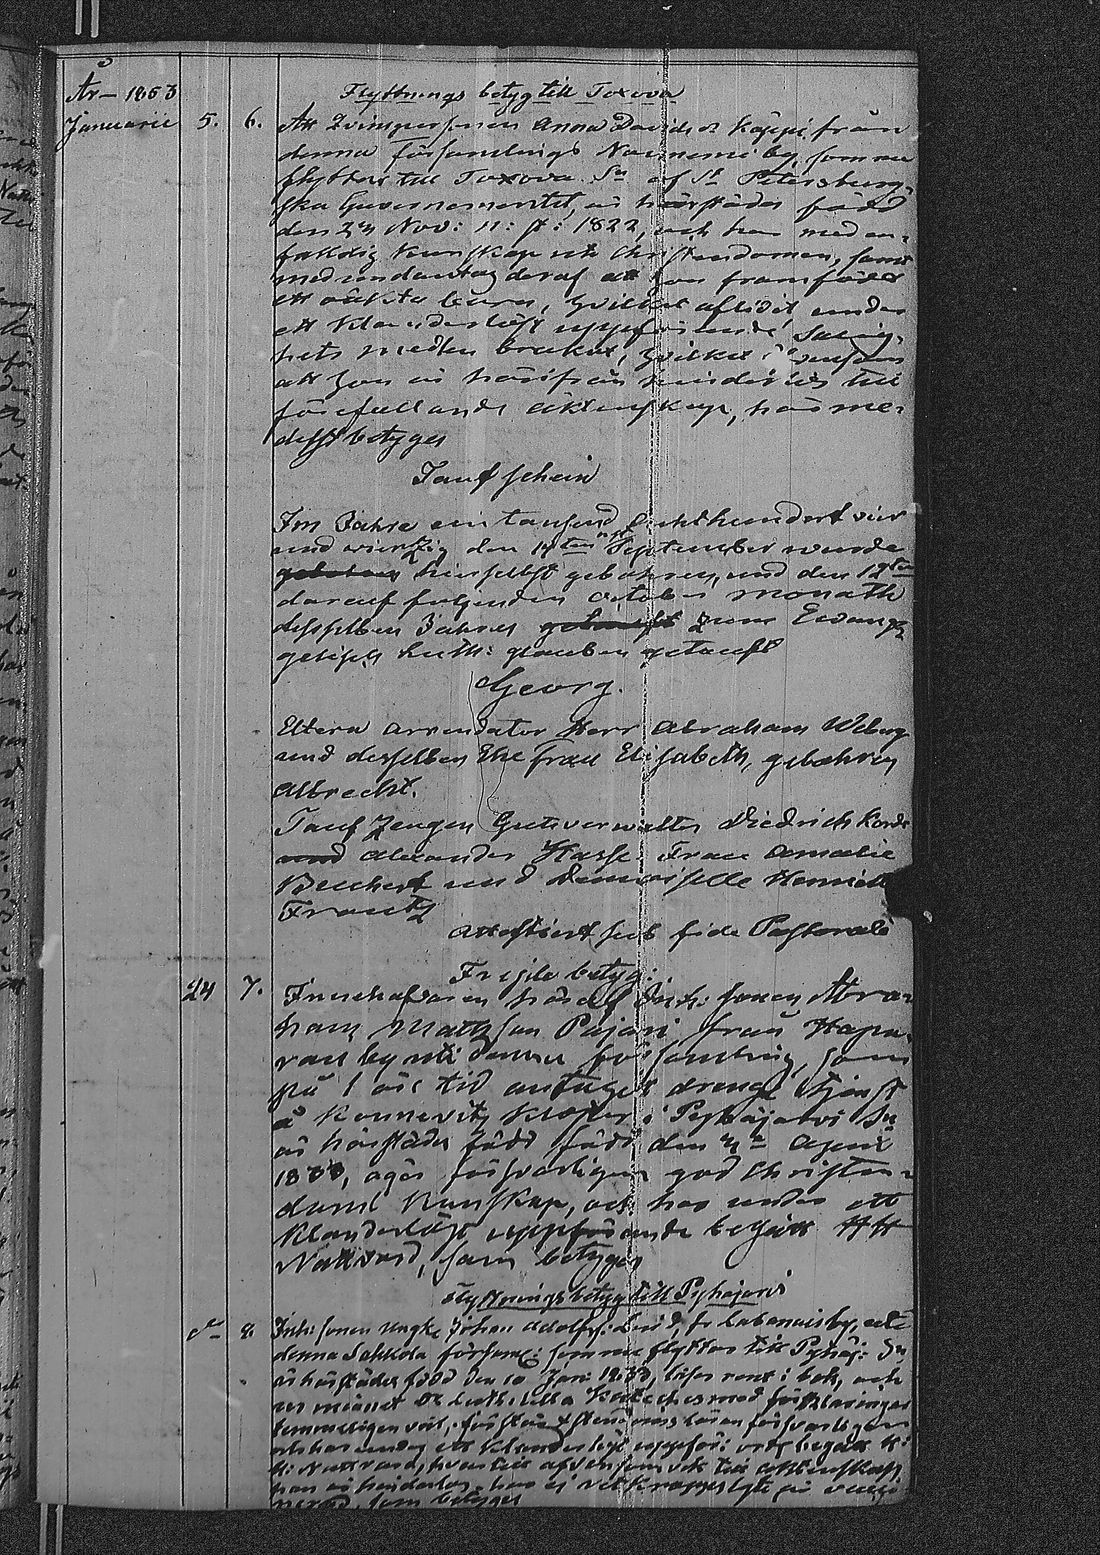 År 1853
Flyttnings betyg till Toxova
Januarii 5. 6. Att Qvinspersonen Anna Davids dr Käppi från
denna församlings by, som nu
flyttar till Toxova Sn af St Petersburg-
ska Guvernementet, är härstädes född
den Nov: n: st: 1822, och har med en
kunskap uti Christendomen, samt
med undantag deraf att hon framfödt
ett oäkta barn, hvilket aflidit, under
ett klanderlöst uppförande salig-
hets medlen brukat, hvilket
att hon är härifrån hinderlös till
förefallande äktenskap, härme-
delst betyges
Tauf schein
Im Jahre ein tausend achthundert vier
und vierzig den 14ten September wurde
hierselbst gebohren, und den 12ten
darauf folgenden October Monath
desselben Jahres getauft zum Evang
gelisch Luth: glauben getauft
Georg.
Eltern Arrendator Herr Abraham Weberg
und desselben Ehe Frau Elisabeth, gebohren
Albrecht.
Tauf Zeugen Gutsverwalter Diedrich Kords
und Alexander Hasse Frau Amalie
Beuchert und Demoiselle Henriette
Frantz
attestiert sub fide Pastorali
Frejde betyg:
24 7. Innehafvaren häraf Inh: sonen Abra-
ham Mattsson Pajari från Hapa-
rais by uti denna församling, som
på 1 års tid antagit drengs tjenst
å Konnevitz Kloster i Pyhäjärvi Sn
är härstädes född född den April
18, äger försvarligen god Christen-
doms Kunskap, och har under ett
Klanderlöst uppförande begått HH
Nattvard, som betyges
Flyttnings betyg till Pyhäjärvi
do 8 Inh: sonen Ungke Johan Adolfs: fr Labanais by, uti
denna Sakkola församl: som nu flyttar till Pyhäj: Sn
är härstädes född den 10 Juni 1833, läser rent i bok, och
ur minnet Dr Luth: lilla Kateches med förklaringar
temmeligen väl, förstår Xstendoms läran försvarligen
och har under ett klanderlöst uppför: ordtl begått H:
H: Nattvard, hvartill äfvensom ock till äktenskap
han är hinderlös, har ej
som betyges